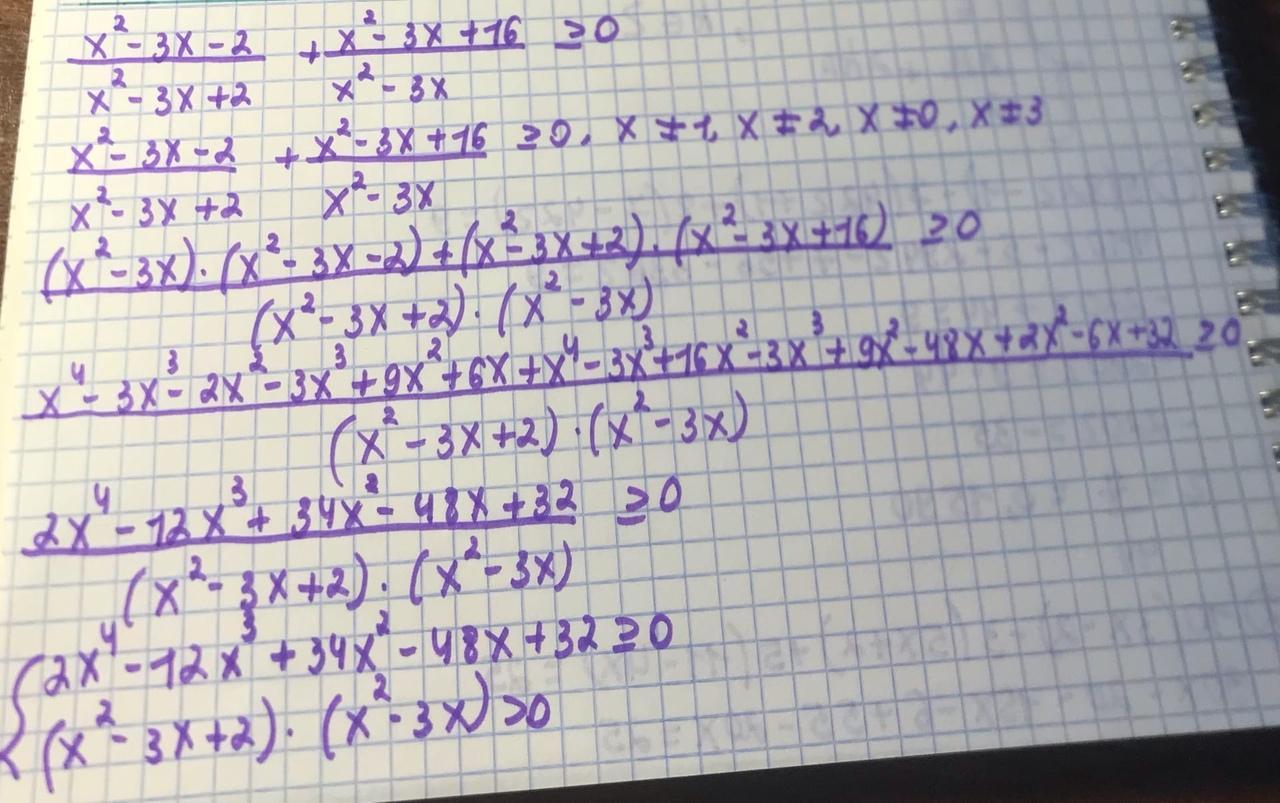 x² - 3x - 2 / x² - 3x + 2 + x² - 3x + 16 / x² - 3x ≥ 0
x² - 3x - 2 / x² - 3x + 2 + x² - 3x + 16 / x² - 3x ≥ 0, x ≠ 1, x ≠ 2, x ≠ 0, x ≠ 3
(x² - 3x) · (x² - 3x - 2) + (x² - 3x + 2) · (x² - 3x + 16) / (x² - 3x + 2) · (x² - 3x) ≥ 0
x⁴ - 3x³ - 2x² - 3x³ + 9x² + 6x + x⁴ - 3x³ + 16x² - 3x³ + 9x² - 48x + 2x² - 6x + 32 / (x² - 3x + 2) · (x² - 3x) ≥ 0
2x⁴ - 12x³ + 34x² - 48x + 32 / (x² - 3x + 2) · (x² - 3x) ≥ 0
{ 2x⁴ - 12x³ + 34x² - 48x + 32 ≥ 0
(x² - 3x + 2) · (x² - 3x) > 0